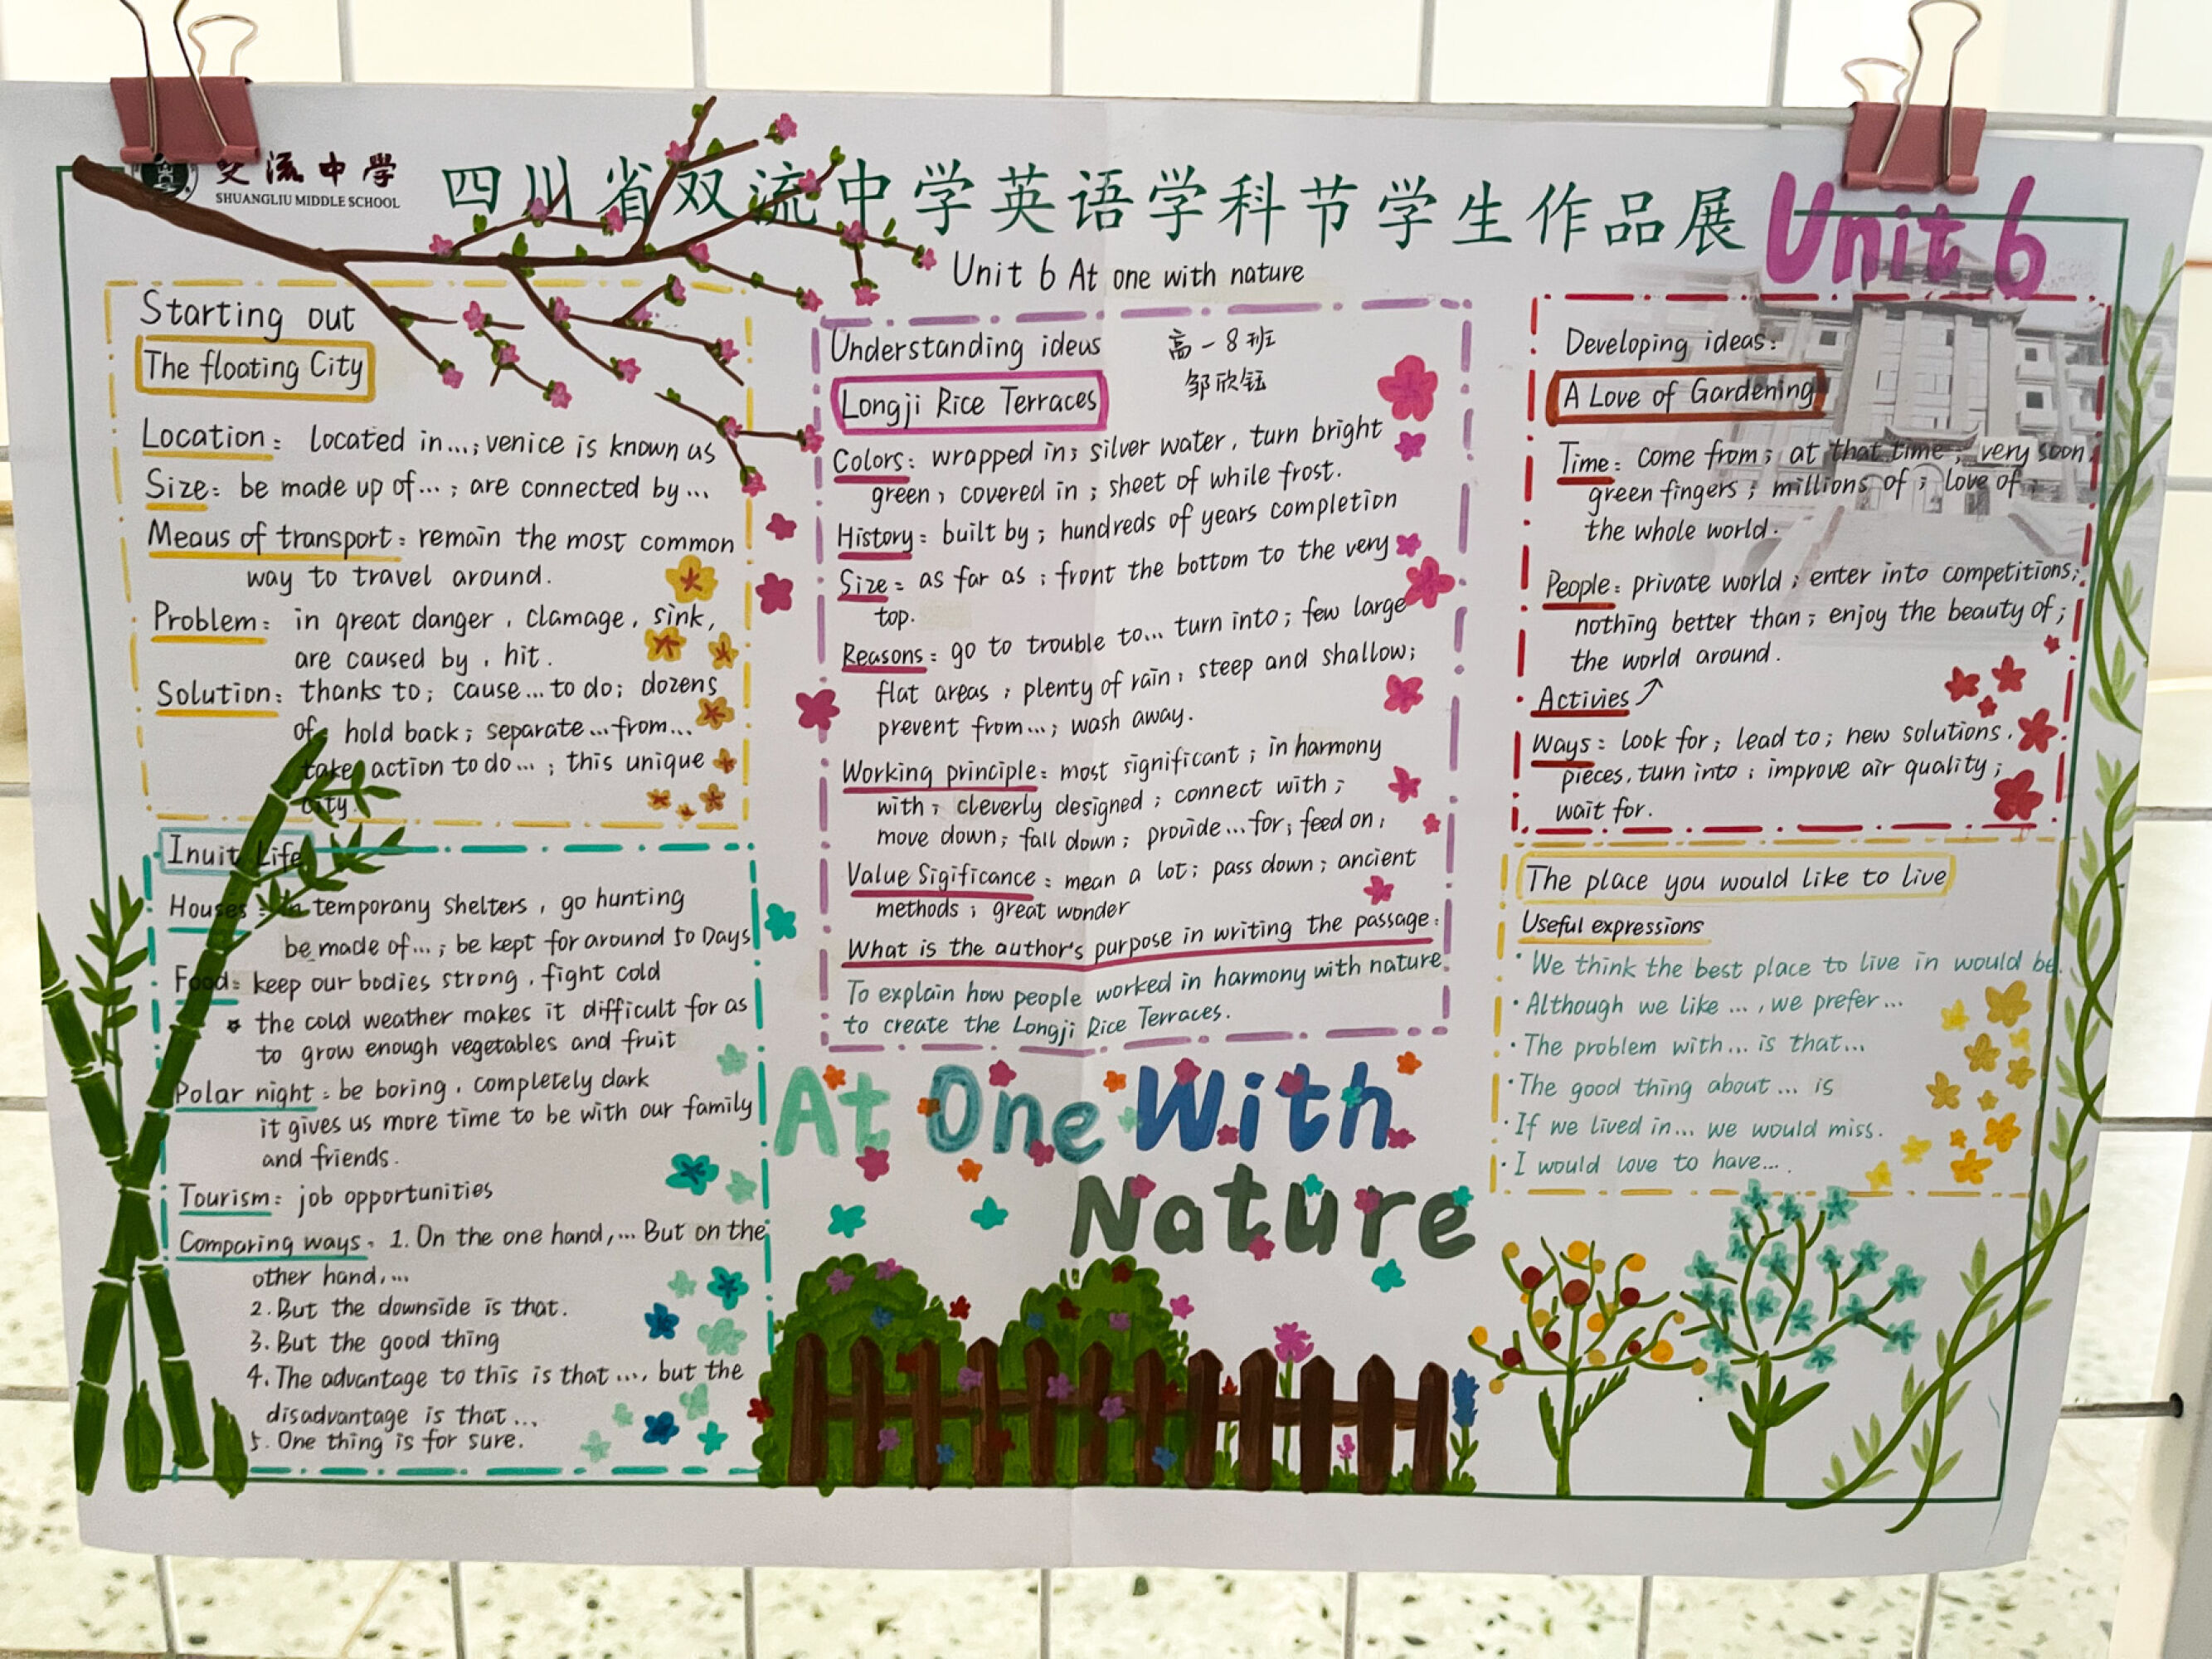 双流中学
SHUANGLIU MIDDLE SCHOOL
四川省双流中学英语学科节学生作品展
Unit 6
Unit 6 At one with nature
Starting out
The floating City
Location: located in...; venice is known as
Size: be made up of...; are connected by...
Meaus of transport: remain the most common
way to travel around.
Problem: in great danger, clamage, sink,
are caused by, hit.
Solution: thanks to; cause...to do; dozens
of; hold back; separate...from...
take action to do...; this unique
city.
Inuit Life
Houses: in temporany shelters, go hunting
be made of...; be kept for around 50 Days
Food: keep our bodies strong, fight cold
the cold weather makes it difficult for as
to grow enough vegetables and fruit
Polar night: be boring, completely dark
it gives us more time to be with our family
and friends.
Tourism: job opportunities
Comparing ways. 1. On the one hand,... But on the
other hand,...
2. But the downside is that.
3. But the good thing
4. The advantage to this is that..., but the
disadvantage is that...
5. One thing is for sure.
Understanding ideus
高一8班
邹欣钰
Longji Rice Terraces
Colors: wrapped in; silver water, turn bright
green, covered in; sheet of while frost.
History: built by; hundreds of years completion
Size: as far as; front the bottom to the very
top.
Reasons: go to trouble to... turn into; few large
flat areas; plenty of rain; steep and shallow;
prevent from...; wash away.
Working principle: most significant; in harmony
with; cleverly designed; connect with;
move down; fall down; provide...for; feed on;
Value Sigificance: mean a lot; pass down; ancient
methods; great wonder
What is the author's purpose in writing the passage:
To explain how people worked in harmony with nature
to create the Longji Rice Terraces.
At One With
Nature
Developing ideas:
A Love of Gardening
Time: come from; at that time; very soon;
green fingers; millions of; love of;
the whole world.
People: private world; enter into competitions;
nothing better than; enjoy the beauty of;
the world around.
Activies
Ways: look for; lead to; new solutions.
pieces, turn into; improve air quality;
wait for.
The place you would like to live
Useful expressions
· We think the best place to live in would be.
· Although we like ..., we prefer...
· The problem with... is that...
· The good thing about... is
· If we lived in... we would miss.
· I would love to have....